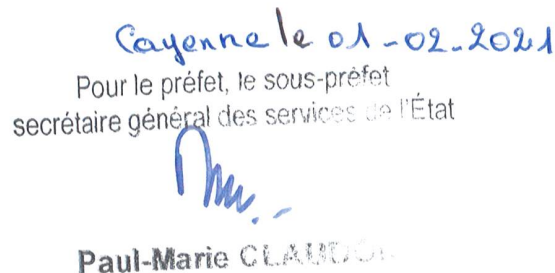 Cayenne le 01-02-2021
Pour le préfet, le sous-préfet
secrétaire général des services de l'État
Paul-Marie